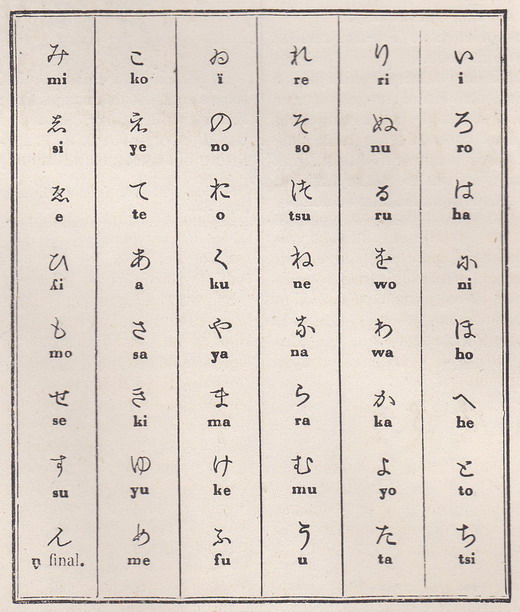 い
i
ろ
ro
は
ha
に
ni
ほ
ho
へ
he
と
to
ち
tsi
り
ri
ぬ
nu
る
ru
を
wo
わ
wa
か
ka
よ
yo
た
ta
れ
re
そ
so
つ
tsu
ね
ne
な
na
ら
ra
む
mu
う
u
ゐ
ï
の
no
お
o
く
ku
や
ya
ま
ma
け
ke
ふ
fu
こ
ko
え
ye
て
te
あ
a
さ
sa
き
ki
ゆ
yu
め
me
み
mi
し
si
ゑ
e
ひ
fi
も
mo
せ
se
す
su
ん
ṇ final.